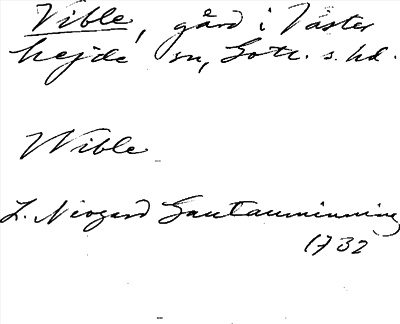 Vible, gård i Väster
hejde sn, Gotl. s. hd.
Wible
L. Neogard Gautauminning
1732